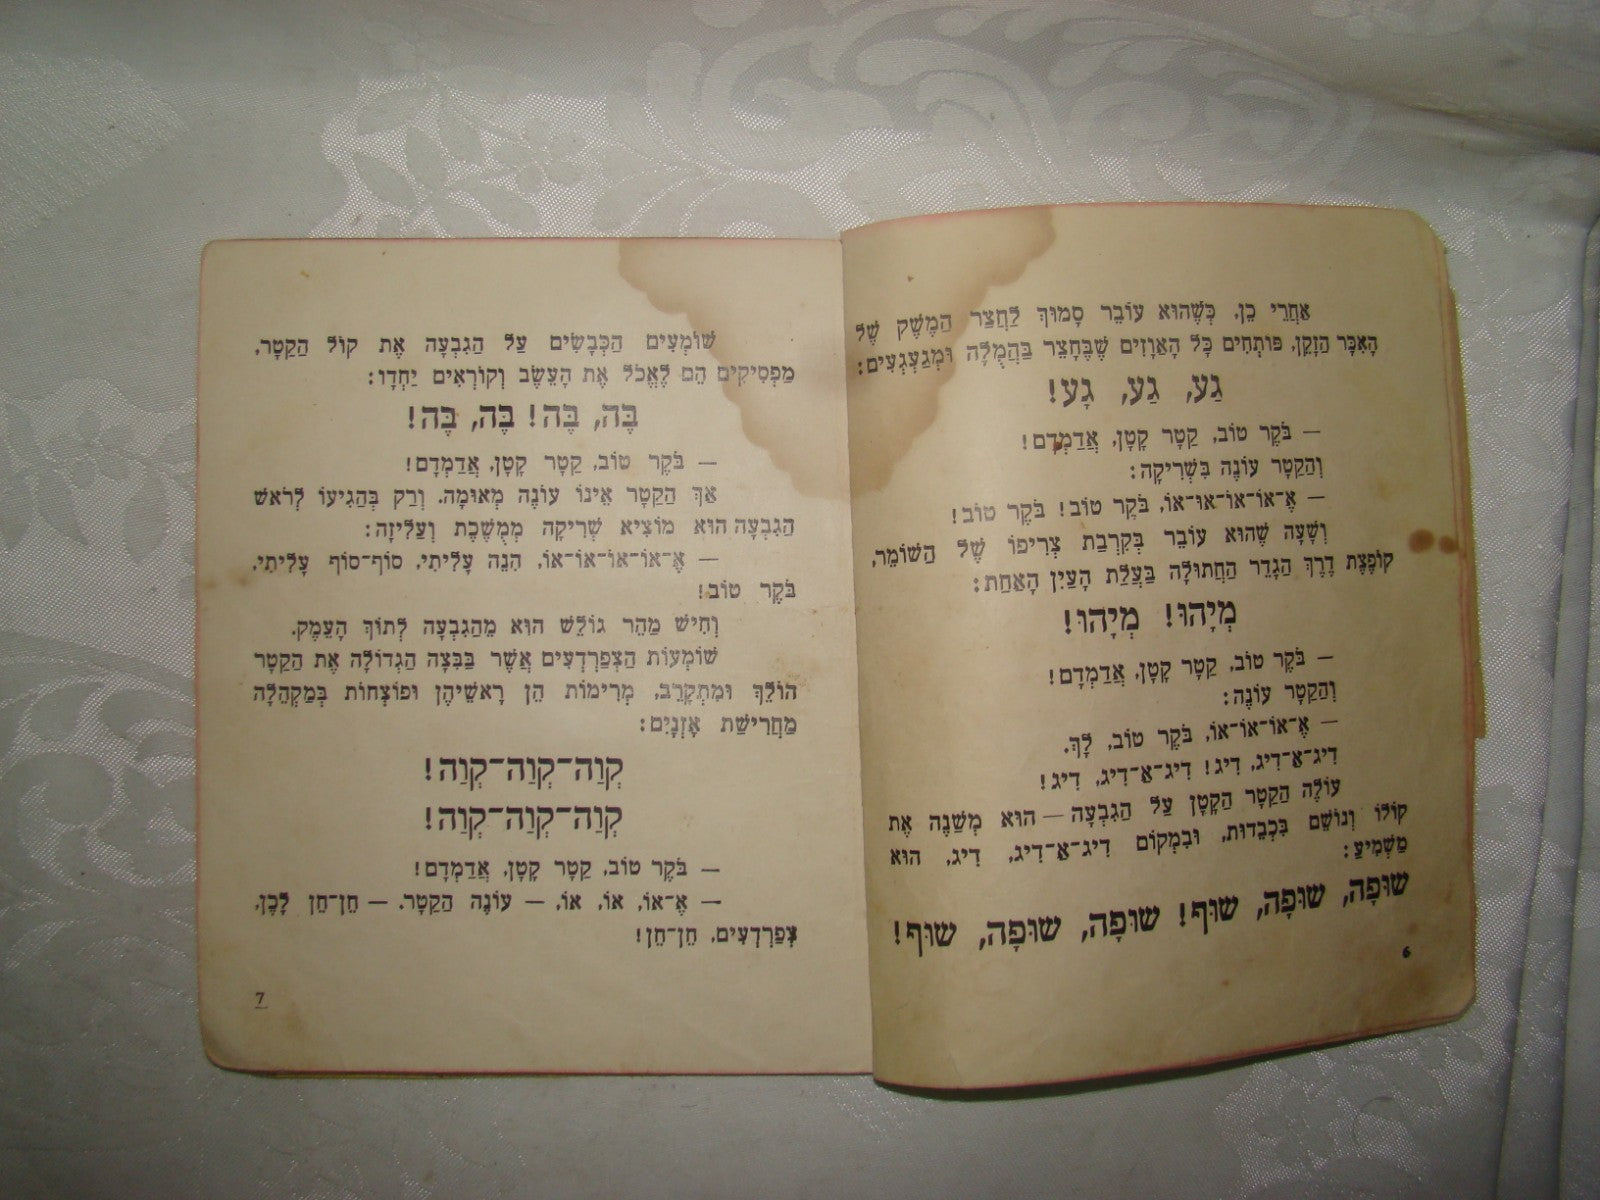 אַחֲרֵי כֵן, כְּשֶׁהוּא עוֹבֵר סָמוּךְ לַחֲצַר הַמֶּשֶׁק שֶׁל
הָאִכָּר הַזָּקֵן, פּוֹתְחִים כָּל הָאַוָּזִים שֶׁבֶּחָצֵר בַּהֲמֻלָּה וּמְגַעְגְּעִים:
גַּע, גַּע, גָּע!
— בֹּקֶר טוֹב, קַטָּר קָטָן, אֲדַמְדָּם!
וְהַקַּטָּר עוֹנֶה בִּשְׁרִיקָה:
— אֶ־אוֹ־אוֹ־אוּ־אוֹ, בֹּקֶר טוֹב! בֹּקֶר טוֹב!
וְשָׁעָה שֶׁהוּא עוֹבֵר בְּקִרְבַת צְרִיפוֹ שֶׁל הַשּׁוֹמֵר,
קוֹפֶצֶת דֶרֶךְ הַגָּדֵר הַחֲתוּלָה בַּעֲלַת הָעַיִן הָאַחַת:
מְיָהוּ! מְיָהוּ!
— בֹּקֶר טוֹב, קַטָּר קָטָן, אֲדַמְדָּם!
וְהַקַּטָּר עוֹנֶה:
— אֶ־אוֹ־אוֹ־אוֹ, בֹּקֶר טוֹב, לָךְ.
דִיג־אַ־דִיג, דִיג! דִיג־אַ־דִיג, דִיג!
עוֹלֶה הַקַּטָּר הַקָּטָן עַל הַגִּבְעָה — הוּא מְשַׁנֶּה אֶת
קוֹלוֹ וְנוֹשֵׁם בִּכְבֵדוּת, וּבִמְקוֹם דִיג־אַ־דִיג, דִיג, הוּא
מַשְׁמִיעַ:
שׁוּפָּה, שׁוּפָּה, שׁוּף! שׁוּפָּה, שׁוּפָּה, שׁוּף!
6
שׁוֹמְעִים הַכְּבָשִׂים עַל הַגִּבְעָה אֶת קוֹל הַקַּטָּר,
מַפְסִיקִים הֵם לֶאֱכֹל אֶת הָעֵשֶׂב וְקוֹרְאִים יַחְדָו:
בֶּה, בֶּה! בֶּה, בֶּה!
— בֹּקֶר טוֹב, קַטָּר קָטָן, אֲדַמְדָּם!
אַךְ הַקַּטָּר אֵינוֹ עוֹנֶה מְאוּמָה, וְרַק בְּהַגִּיעוֹ לְרֹאשׁ
הַגִּבְעָה הוּא מוֹצִיא שְׁרִיקָה מְמֻשֶּׁכֶת וְעַלִּיזָה:
— אֶ־אוֹ־אוֹ־אוֹ־אוֹ, הִנֵּה עָלִיתִי, סוֹף־סוֹף עָלִיתִי,
בֹּקֶר טוֹב!
וְחִישׁ מַהֵר גּוֹלֵשׁ הוּא מֵהַגִּבְעָה לְתוֹךְ הָעֵמֶק.
שׁוֹמְעוֹת הַצְּפַרְדְּעִים אֲשֶׁר בַּבִּצָּה הַגְּדוֹלָה אֶת הַקַּטָּר
הוֹלֵךְ וּמִתְקָרֵב, מְרִימוֹת הֵן רָאשֵׁיהֶן וּפוֹצְחוֹת בְּמַקְהֵלָה
מַחֲרִישַׁת אָזְנַיִם:
קְוַה־קְוַה־קְוַה!
קְוַה־קְוַה־קְוַה!
— בֹּקֶר טוֹב, קַטָּר קָטָן, אֲדַמְדָּם!
— אֶ־אוֹ, אוֹ, אוֹ, — עוֹנֶה הַקַּטָּר, — חֵן־חֵן לָכֶן,
צְפַרְדְּעִים, חֵן־חֵן!
7